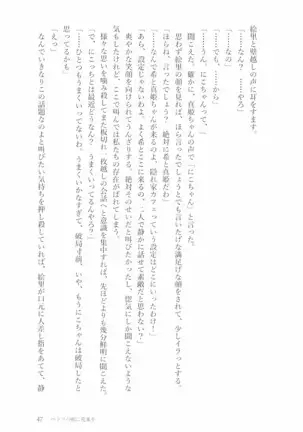 絵里と壁越しの声に耳をすます。
「……なの」
「……でも。……から」
「……うん。にこちゃんって」
聞こえた。確かに、真姫ちゃんの声で「にこちゃん」と言った。
思わず絵里の顔を見れば、ほら言ったでしょうとでも言いたげな満足げな顔をされて、少しイラっとする。
「ほらね、言ったでしょう？ 絶対に希と真姫だわ」
「なんで希と真姫ちゃんが来るのよ、隠れ家カフェっていう設定はどこにいったわけ！」
「あら、設定じゃなくてよく希とここに来るの。二人で静かに話せて素敵だと思わない？」
爽やかな笑顔を向けられてうんざりする。絶対そのせいだと叫びたかったし、惚気にしか聞こえないような
気もしたけれど、ここで叫んでは私たちの存在がばれてしまう。
様々な思いを噛み殺してまた板切れ一枚越しの会話へと意識を集中すれば、先ほどよりも幾分鮮明に聞こえた。
「で、にこっちとは最近どうなん？ うまくいってるんやろ？」
「……ひとつもうまくいってないわ。うまくいかなすぎて、破局寸前、いや、もうにこちゃんは破局したと
思ってるかも」
「えっ」
なんでいきなりこの話題なのよと叫びたい気持ちを押し殺していれば、絵里が口元に人差し指をあてて、静
47